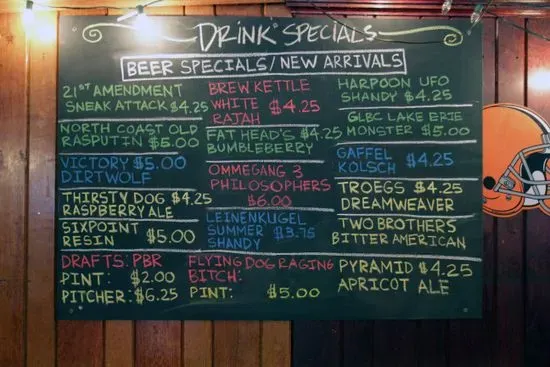 DRINK SPECIALS
BEER SPECIALS/NEW ARRIVALS
21ST AMENDMENT
SNEAK ATTACK $4.25
NORTH COAST OLD
RASPUTIN $5.00
VICTORY $5.00
DIRTWOLF
THIRSTY DOG $4.25
RASPBERRY ALE
SIXPOINT
RESIN $5.00
DRAFTS: PBR
PINT: $2.00
PITCHER: $6.25
BREW KETTLE
WHITE $4.25
RAJAH
FAT HEAD'S $4.25
BUMBLEBERRY
OMMEGANG 3
PHILOSOPHERS
$6.00
LEINENKUGEL
SUMMER $3.75
SHANDY
FLYING DOG RAGING
BITCH:
PINT: $5.00
HARPOON UFO
SHANDY $4.25
GLBC LAKE ERIE
MONSTER $5.00
GAFFEL
KOLSCH $4.25
TROEGS $4.25
DREAMWEAVER
TWO BROTHERS
BITTER AMERICAN
PYRAMID $4.25
APRICOT ALE